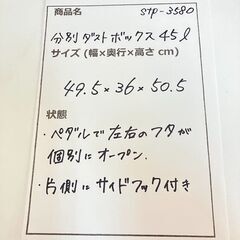 商品名 stp-3580
分別ダストボックス45ℓ
サイズ (幅×奥行×高さ cm)
49.5×36×50.5
状態
・ペダルで左右のフタが
個別にオープン.
・片側にサイドフック付き